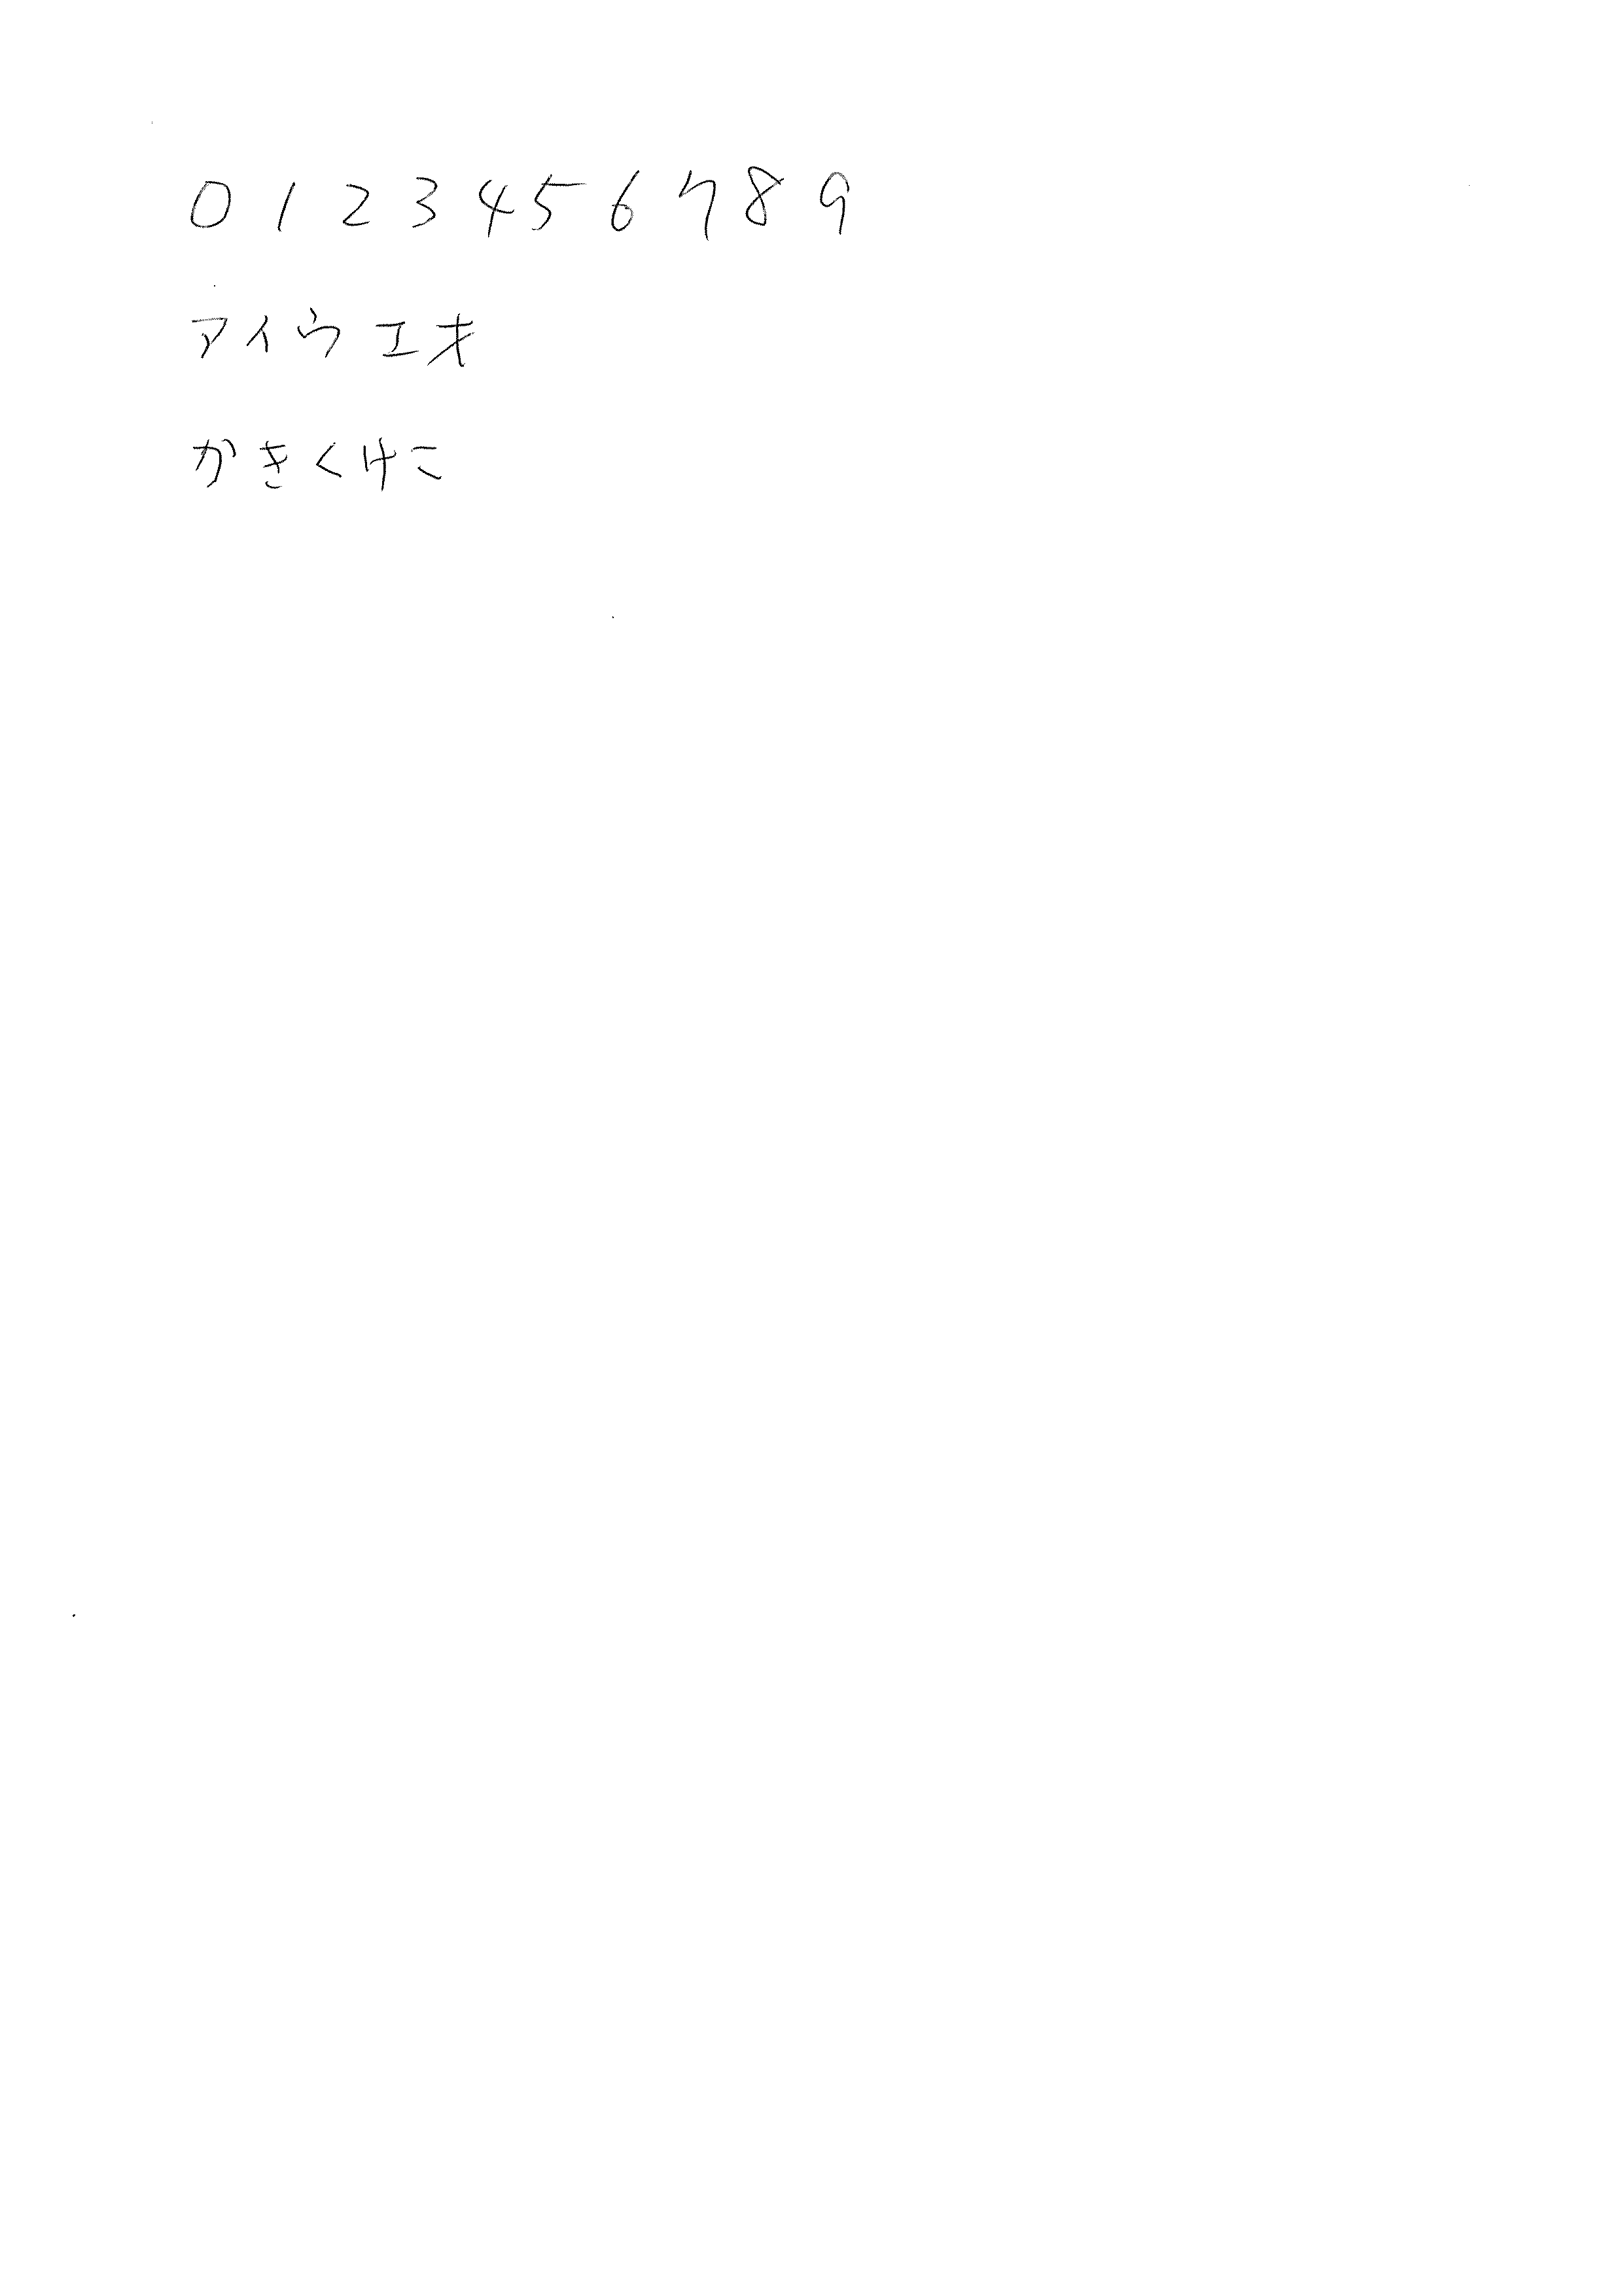 0123456789
アイウエオ
かきくけこ